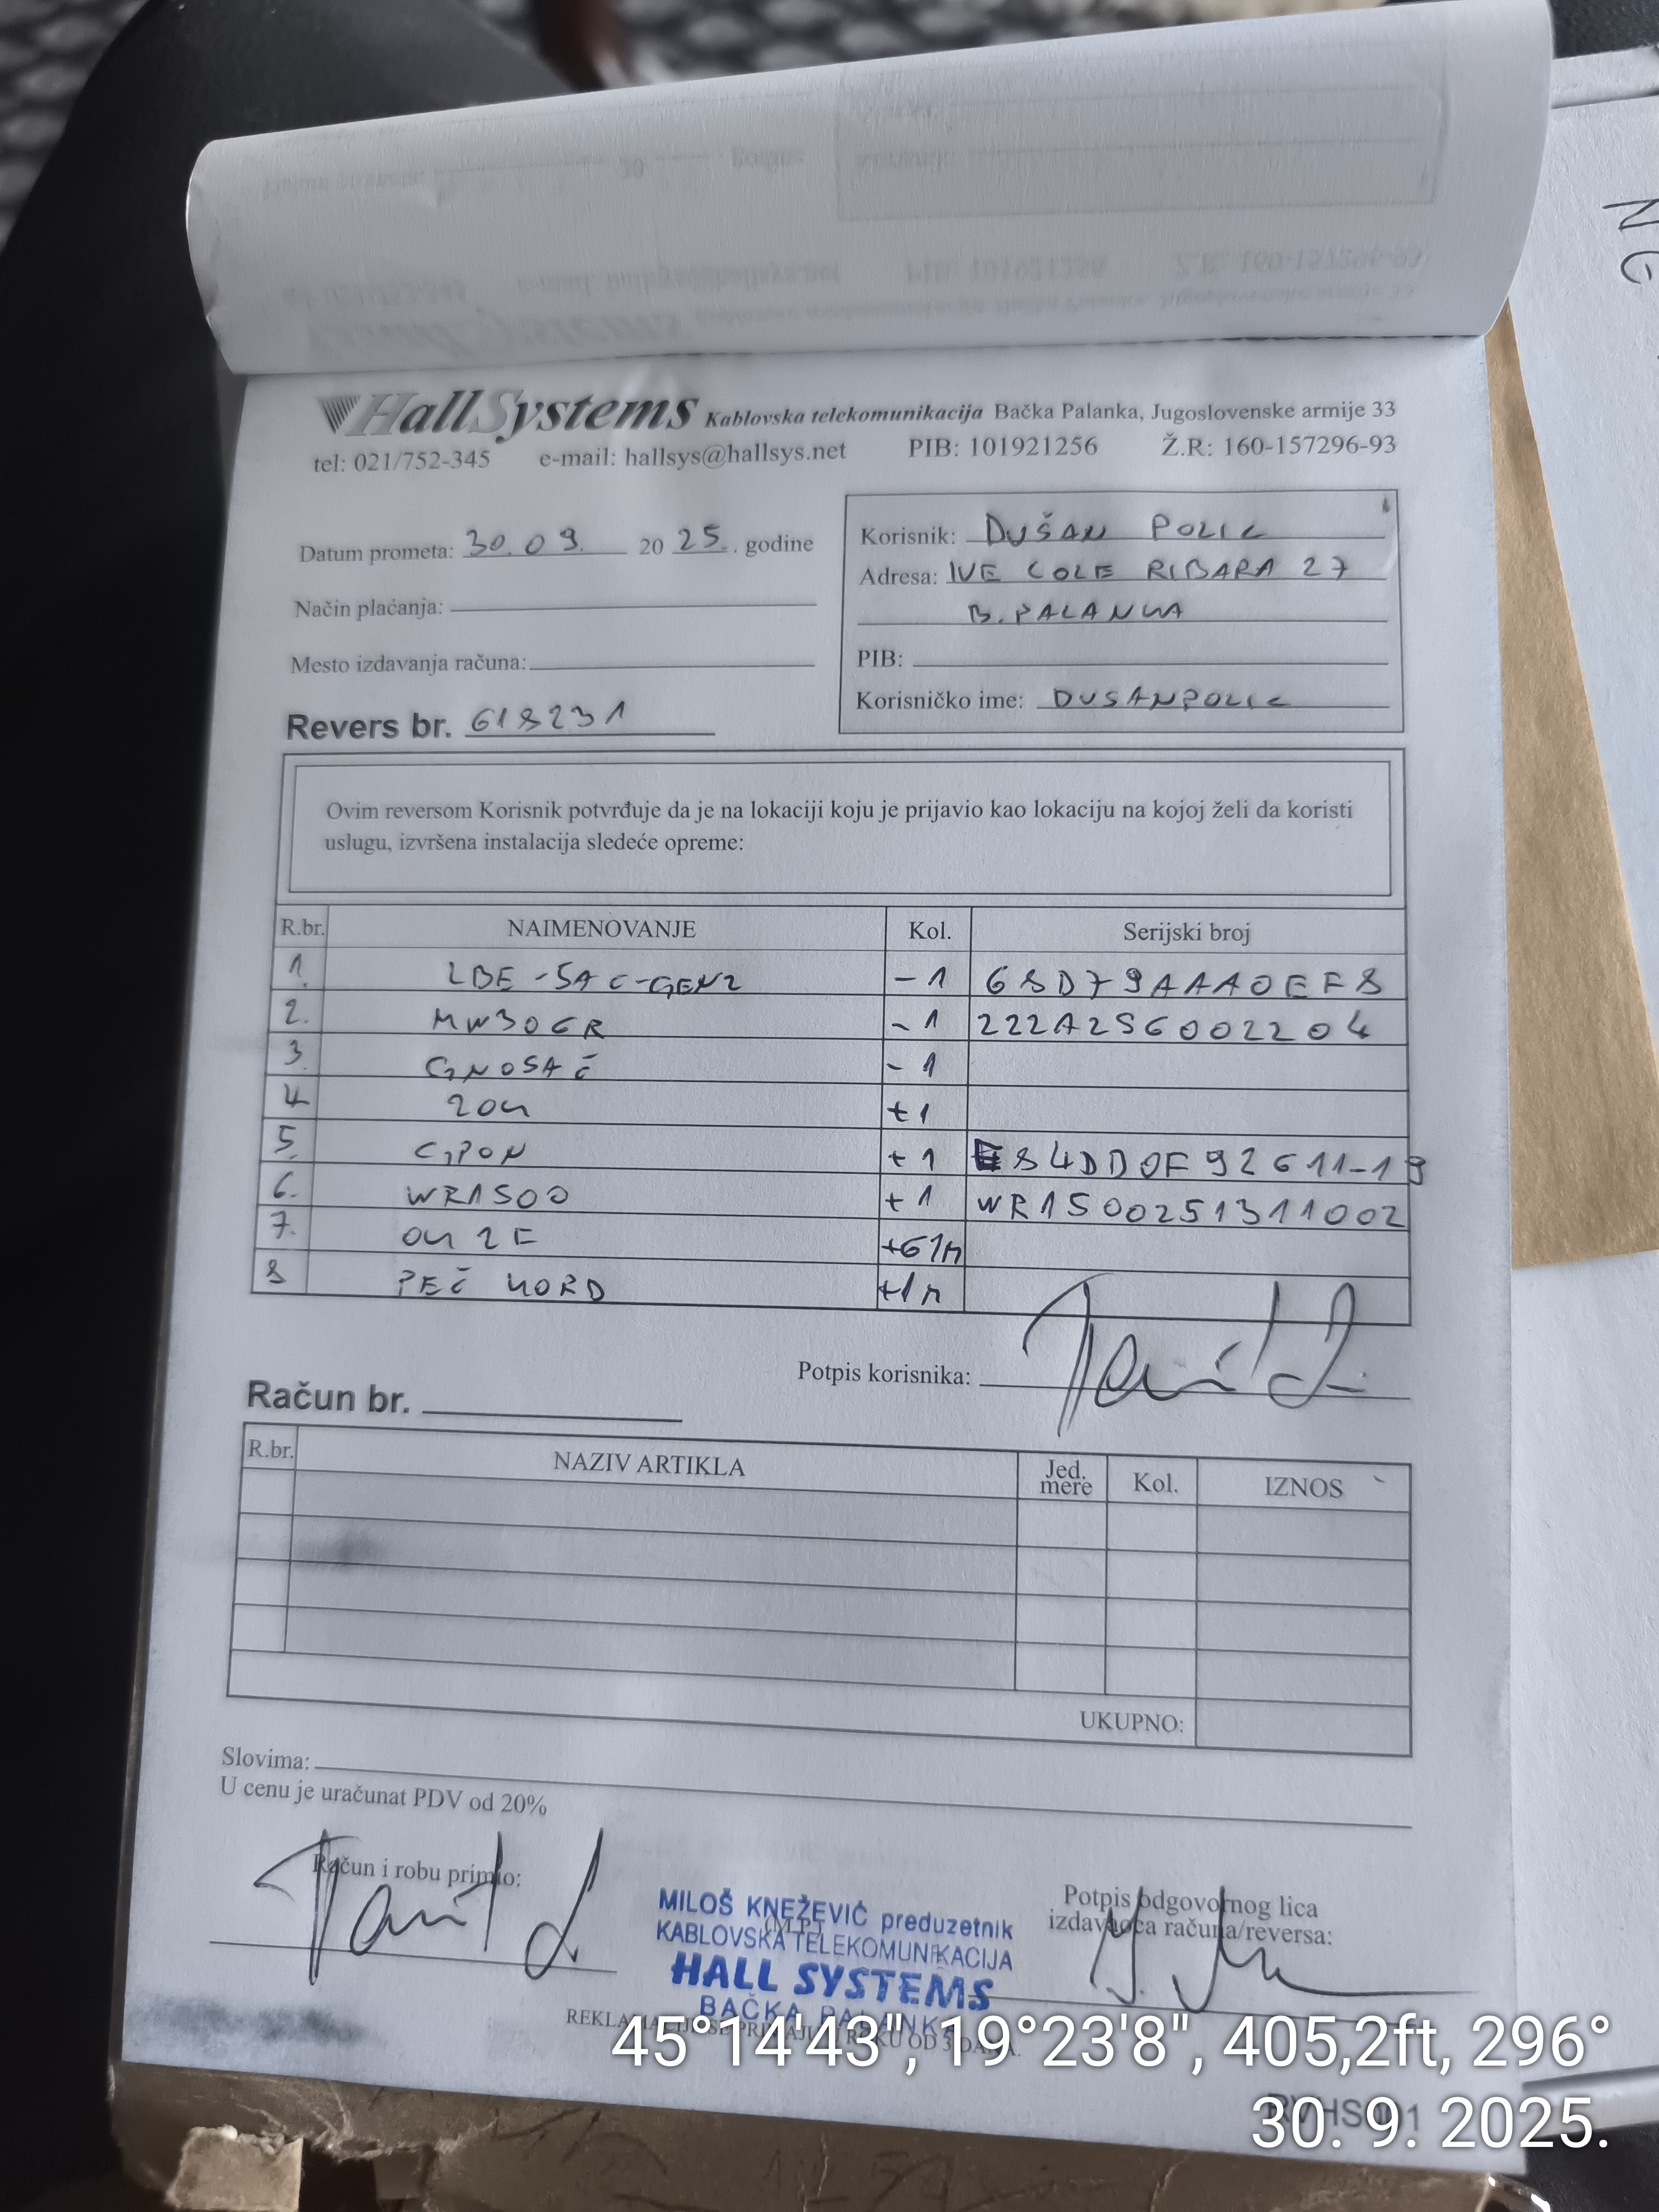 HallSystems Kablovska telekomunikacija Bačka Palanka, Jugoslovenske armije 33
tel: 021/752-345 e-mail: hallsys@hallsys.net PIB: 101921256 Ž.R: 160-157296-93
Datum prometa: 30.09. 2025. godine
Način plaćanja:
Mesto izdavanja računa:
Revers br. 618231
Korisnik: DUŠAN POLIC
Adresa: IVE LOLE RIBARA 27
B. PALANKA
PIB:
Korisničko ime: DUSANPOLIC
Ovim reversom Korisnik potvrđuje da je na lokaciji koju je prijavio kao lokaciju na kojoj želi da koristi
uslugu, izvršena instalacija sledeće opreme:
R.br. NAIMENOVANJE Kol. Serijski broj
1. LBE-5AC-GEN2 -1 68D79AAA0EF8
2. MW306R -1 222A2S6002204
3. GNOSAČ -1
4 ZOK +1
5. GPON +1 84DD0F92611-19
6. WR1500 +1 WR1500251311002
7. OK 2F +61M
8 PEČ KORD +1M
Potpis korisnika:
Račun br.
R.br. NAZIV ARTIKLA Jed. mere Kol. IZNOS
UKUPNO:
Slovima:
U cenu je uračunat PDV od 20%
Račun i robu primio:
(M.P.)
Potpis odgovornog lica
izdavaoca računa/reversa:
MILOŠ KNEŽEVIĆ preduzetnik
KABLOVSKA TELEKOMUNIKACIJA
HALL SYSTEMS
BAČKA PALANKA
45°14'43", 19°23'8", 405,2ft, 296°
30. 9. 2025.